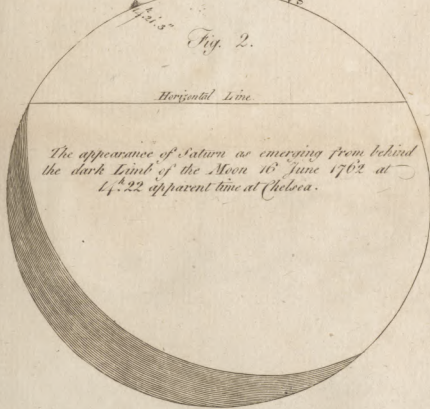 Fig. 2.
Horizontal Line
The appearance of Saturn as emerging from behind
the dark Limb of the Moon 16 June 1762 at
14.h 22 apparent time at Chelsea.